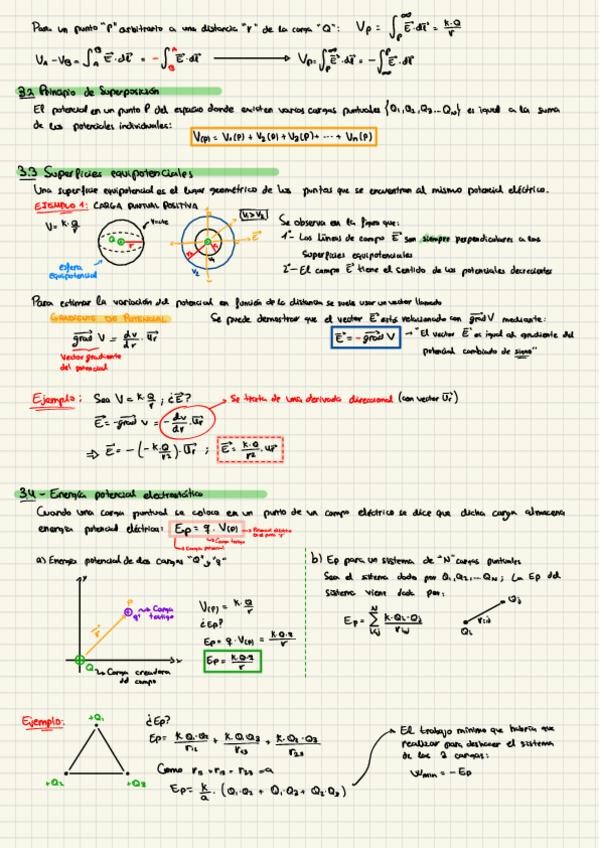 Para un punto "P" arbitrario a una distancia "r" de la carga "Q": Vp = ∫_P^∞ E⃗·dl⃗ = K·Q/r
V_A - V_B = ∫_A^B E⃗·dl⃗ = -∫_B^A E⃗·dl⃗ → Vp = ∫_P^∞ E⃗·dl⃗ = -∫_∞^P E⃗·dl⃗
3.2 Principio de Superposición
El potencial en un punto P del espacio donde existen varias cargas puntuales {Q₁, Q₂, Q₃... Q_N} es igual a la suma
de los potenciales individuales:
V(P) = V₁(P) + V₂(P) + V₃(P) + ... + Vn(P)
3.3 Superficies equipotenciales
Una superficie equipotencial es el lugar geométrico de los puntos que se encuentran al mismo potencial eléctrico.
EJEMPLO 1: CARGA PUNTUAL POSITIVA
V = K·Q/r
V=cte
Q
r
esfera
equipotencial
V₁ > V₂
E⃗
V₁
V₂
Se observa en la figura que:
1º- Las líneas de campo E⃗ son siempre perpendiculares a las
superficies equipotenciales
2º- El campo E⃗ tiene el sentido de los potenciales decrecientes
Para estimar la variación del potencial en función de la distancia se suele usar un vector llamado
GRADIENTE DE POTENCIAL
Se puede demostrar que el vector E⃗ está relacionado con grad V mediante:
grad V = dv/dr · u⃗r
Vector gradiente
del potencial
E⃗ = -grad V → "El vector E⃗ es igual al gradiente del
potencial cambiado de signo"
Ejemplo: Sea V = K·Q/r ; ¿E⃗?
Se trata de una derivada direccional (con vector u⃗r)
E⃗ = -grad V = -dv/dr · u⃗r
⇒ E⃗ = -(-K·Q/r²)·u⃗r ; E⃗ = K·Q/r² · u⃗r
3.4 - Energía potencial electrostática
Cuando una carga puntual se coloca en un punto de un campo eléctrico se dice que dicha carga almacena
energía potencial eléctrica: Ep = q · V(P)
Carga testigo
a) Energía potencial de dos cargas "Q" y "q"
y
P
q
Carga
testigo
r⃗
Q
x
Carga creadora
del campo
V(P) = K·Q/r
¿Ep?
Ep = q·V(P) = K·Q·q/r
Ep = K·Q·q/r
b) Ep para un sistema de "N" cargas puntuales
Sea el sistema dado por Q₁, Q₂... Q_N; la Ep del
sistema viene dada por:
Ep = Σ_{i,j}^N K·Qi·Qj/r_ij
Qj
r_ij
Qi
Ejemplo:
+Q₁
+Q₂
+Q₃
¿Ep?
Ep = K·Q₁·Q₂/r₁₂ + K·Q₁·Q₃/r₁₃ + K·Q₂·Q₃/r₂₃
Como r₁₂ = r₁₃ = r₂₃ = a
Ep = K/a · (Q₁·Q₂ + Q₁·Q₃ + Q₂·Q₃)
El trabajo mínimo que habría que
realizar para deshacer el sistema
de las 3 cargas:
Wmin = -Ep